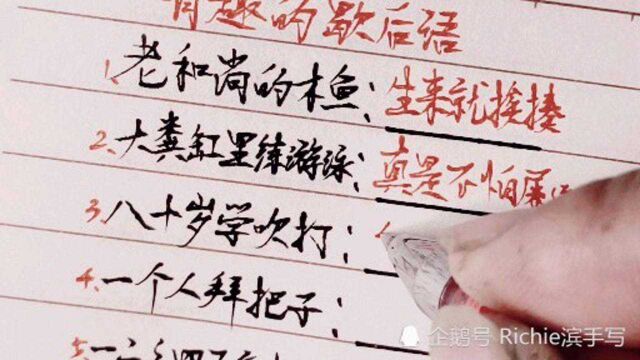 有趣的歇后语
1、老和尚的木鱼：生来就挨揍
2、大粪缸里练游泳：真是不怕屎
3、八十岁学吹打：
4、一个人拜把子：
企鹅号 Richie滨手写